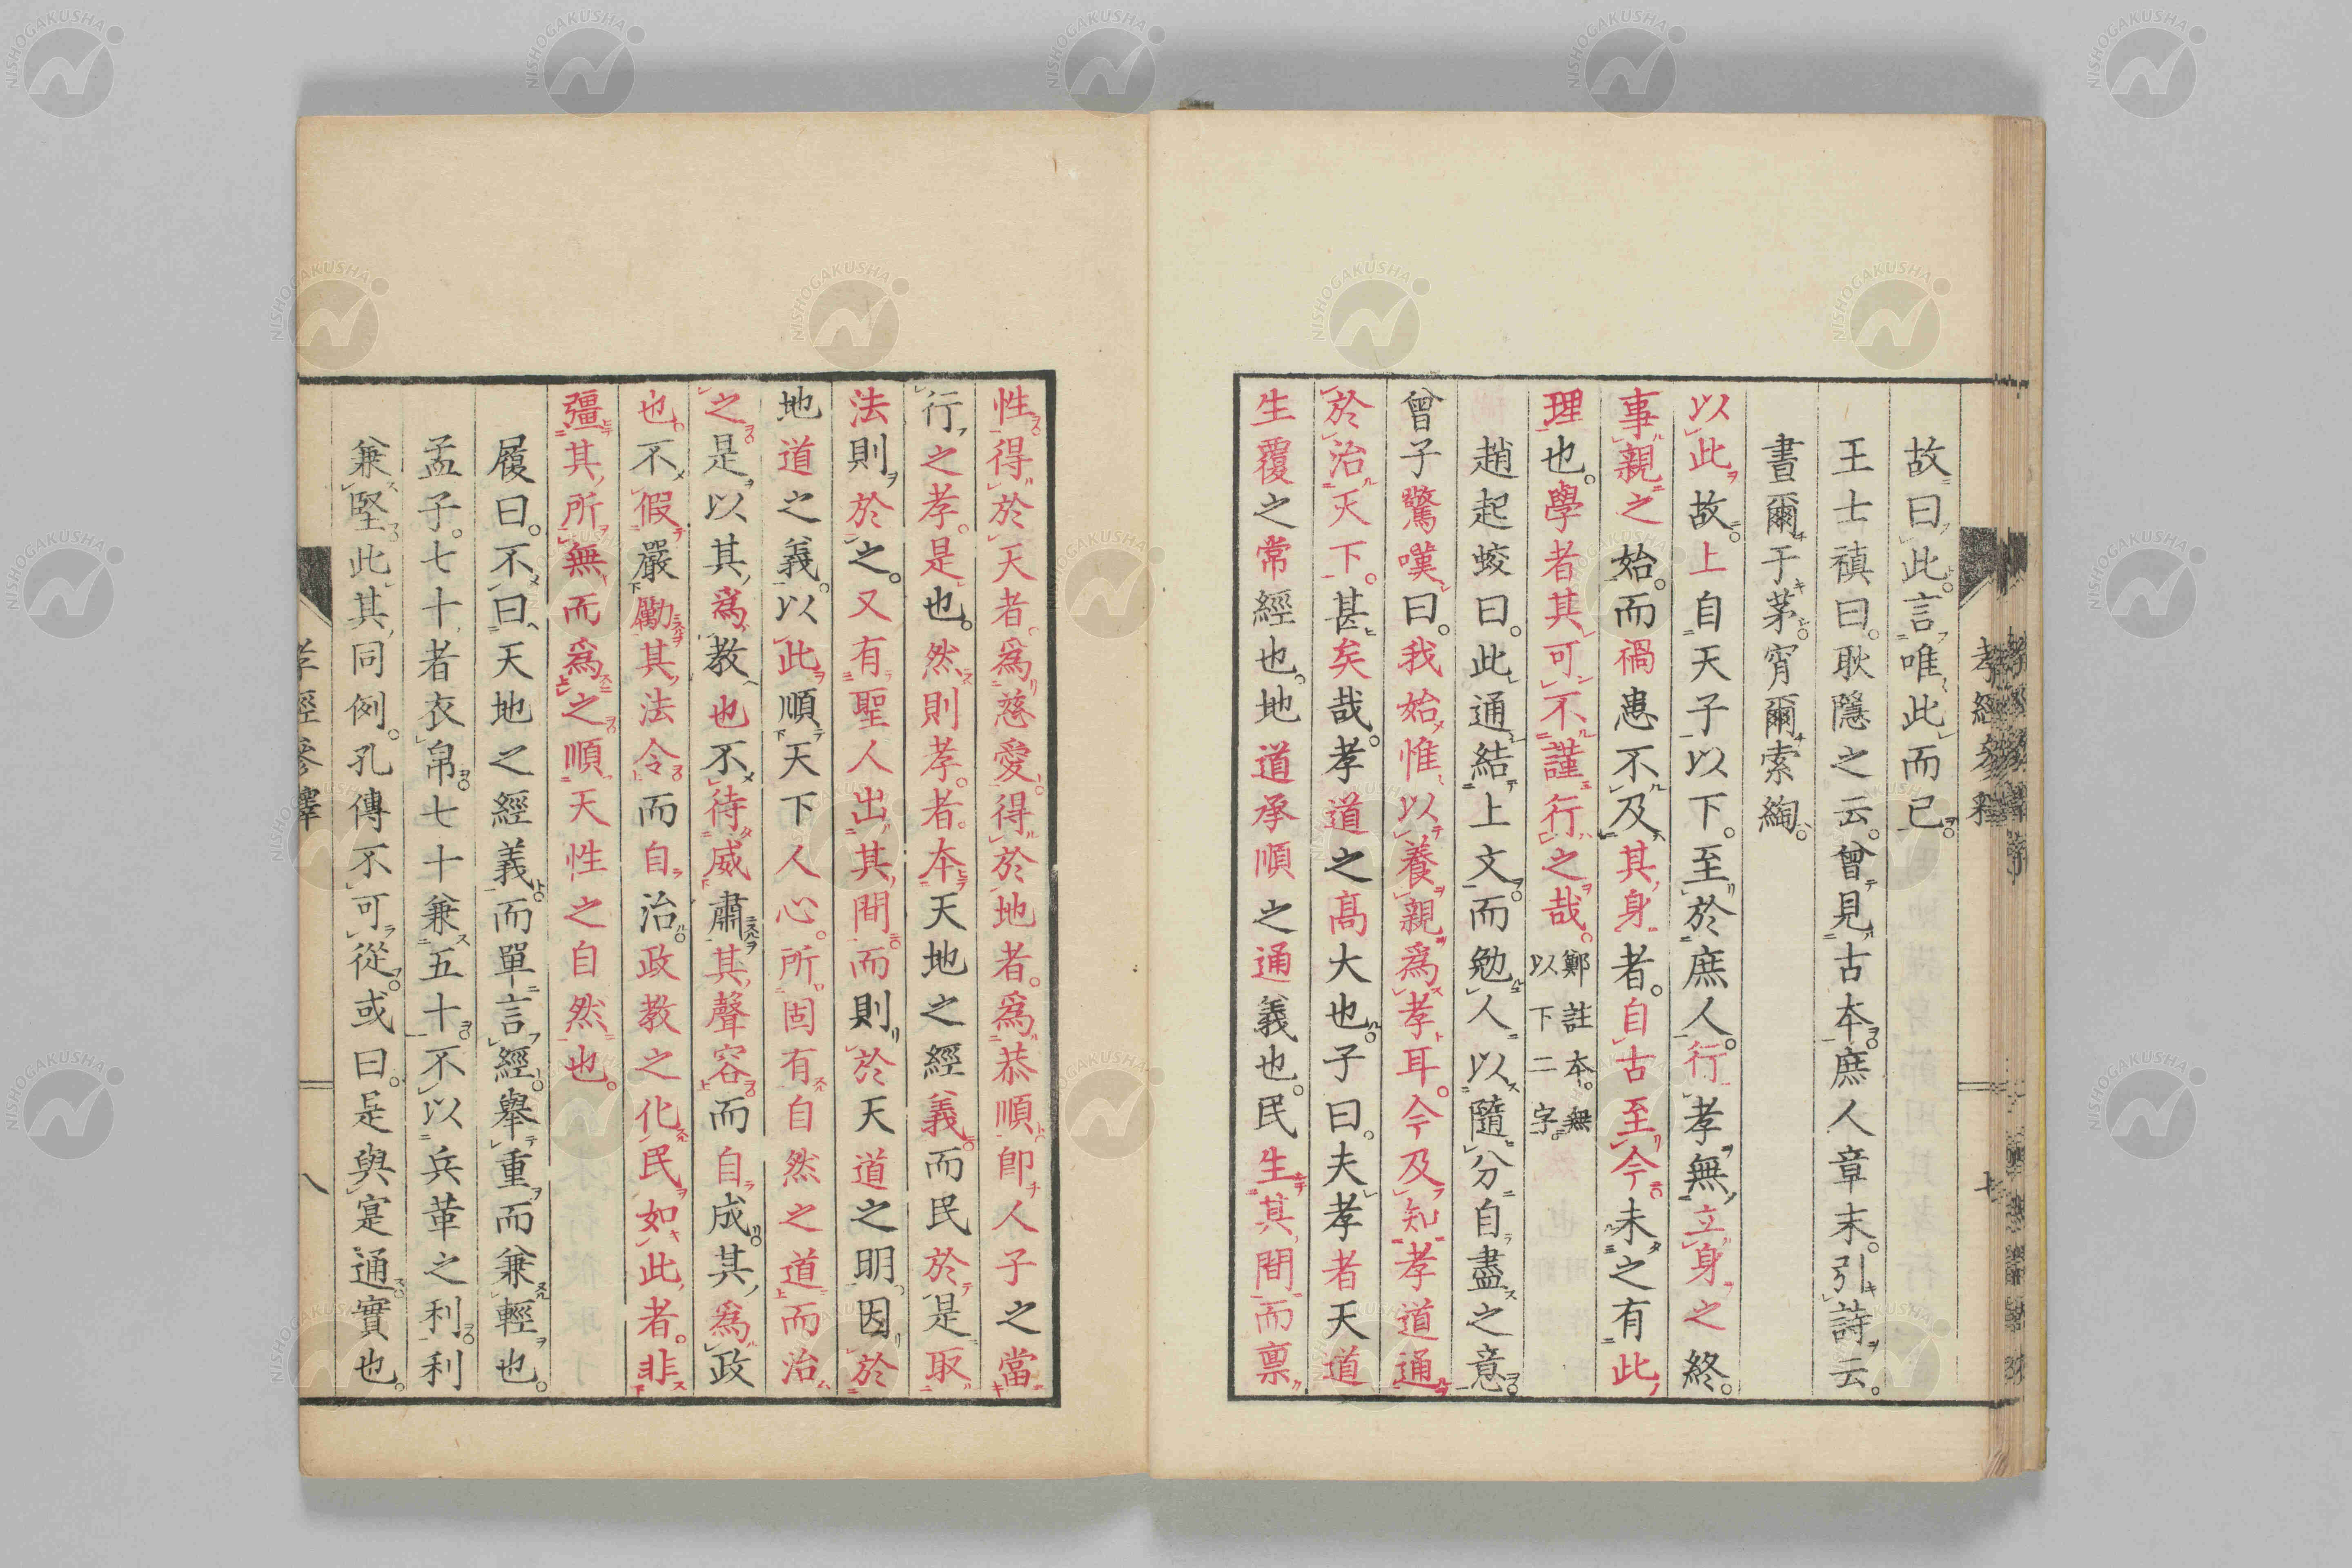 故曰此言唯此而已
王士禛曰耿隱之云曾見古本庶人章末引詩云
晝爾于茅宵爾索綯
以此故上自天子以下至於庶人行孝無立身之終
事親之始而禍患不及其身者自古至今未之有此
理也學者其可不謹行之哉鄭註本無以下二字
趙起蛟曰此通結上文而勉人以隨分自盡之意
曾子驚嘆曰我始惟以養親爲孝耳今及知孝道通
於治天下甚矣哉孝道之高大也子曰夫孝者天道
生覆之常經也地道承順之通義也民生其間而禀
性得於天者爲慈愛得於地者爲恭順卽人子之當
行之孝是也然則孝者本天地之經義而民於是取
法則於之又有聖人出其間而則於天道之明因於
地道之義以此順天下人心所固有自然之道而治
之是以其爲教也不待威肅其聲容而自成其爲政
也不假嚴勵其法令而自治政教之化民如此者非
彊其所無而爲之順天性之自然也
履曰不曰天地之經義而單言經舉重而兼輕也
孟子七十者衣帛七十兼五十不以兵革之利利
兼堅此其同例孔傳不可從或曰是與寔通實也
孝經參釋
八
NISHOGAKUSHA